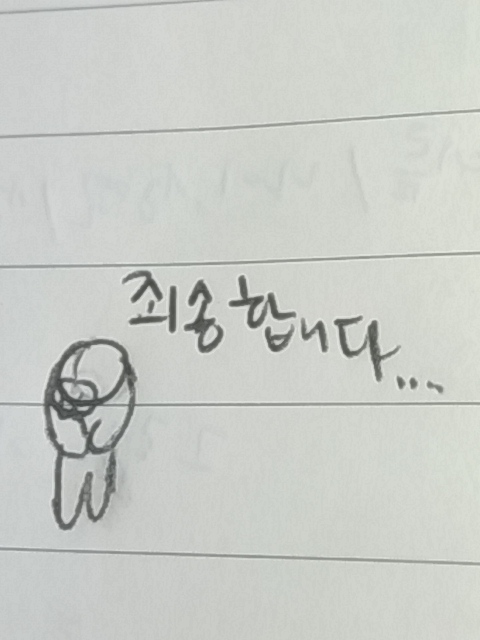 죄송합니다...